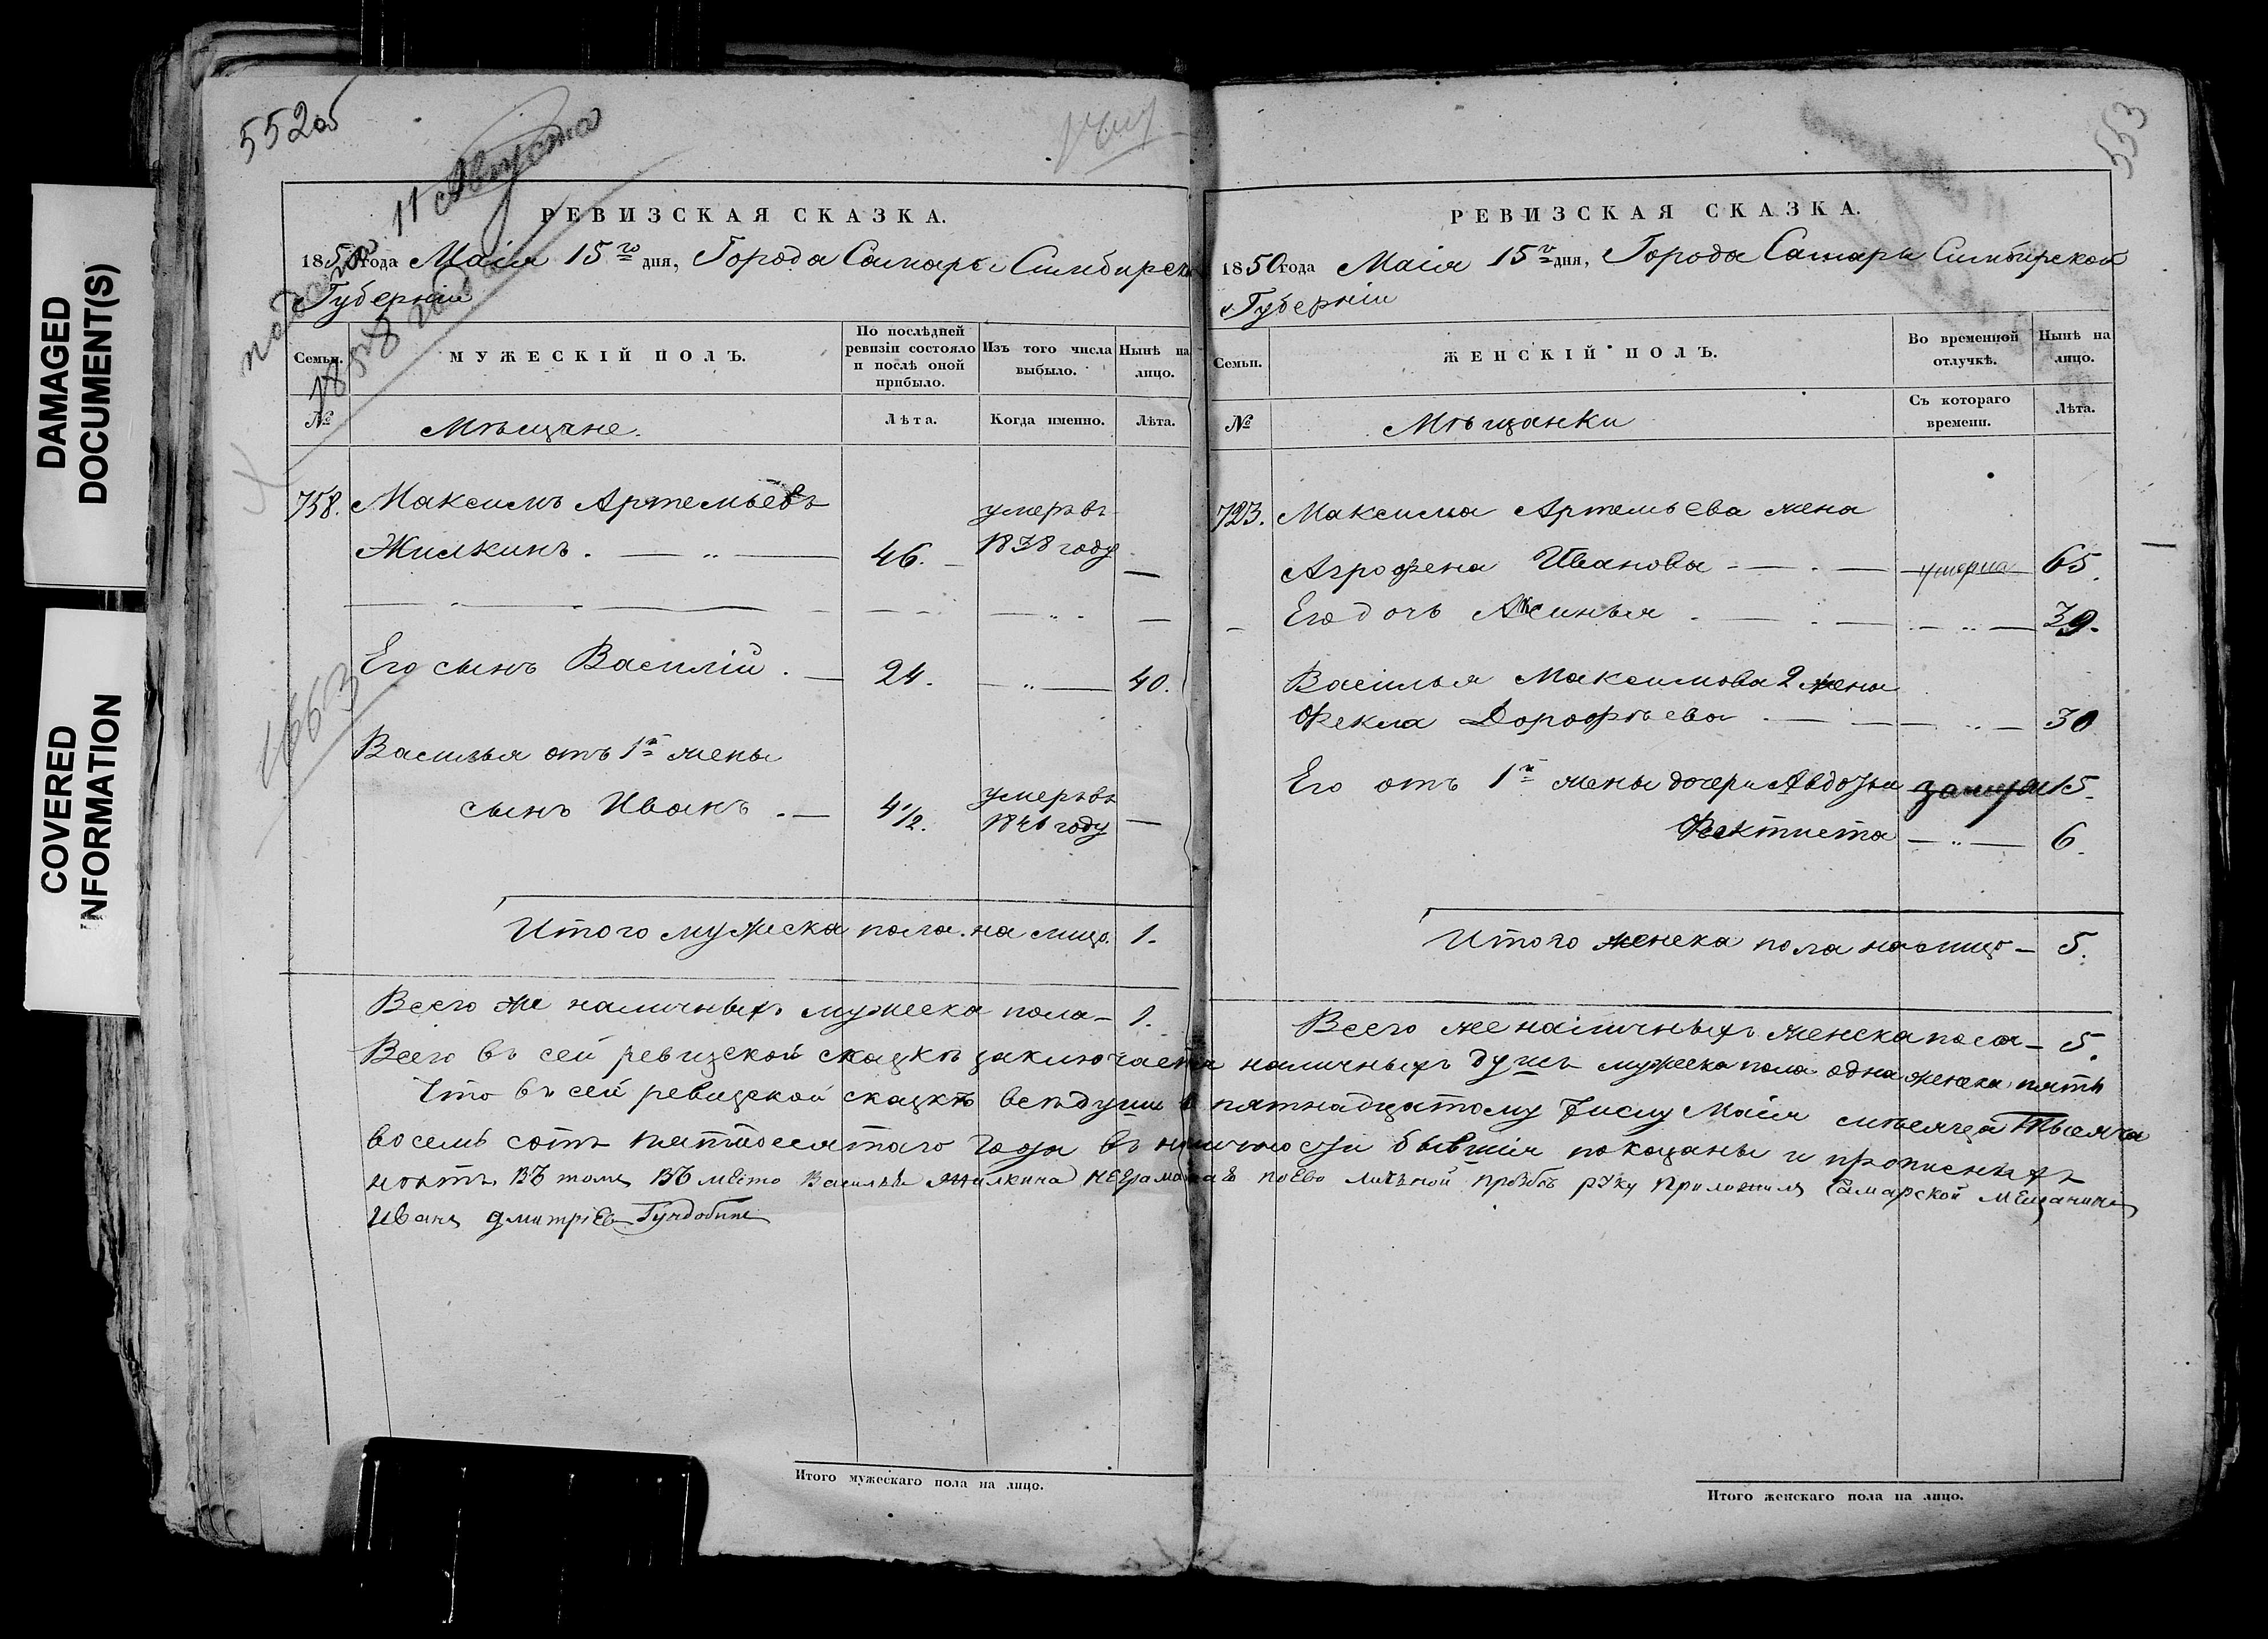 DAMAGED
DOCUMENT(S)
COVERED
INFORMATION
552об
подана 11 Августа
1850 года
1663
РЕВИЗСКАЯ СКАЗКА.
1850 года Маія 15го дня, Города Самары Симбирской
Губерніи
Семьи. МУЖЕСКІЙ ПОЛЪ. По послѣдней ревизіи состояло и послѣ оной прибыло. Изъ того числа выбыло. Нынѣ на лицо.
№ Мѣщане. Лѣта. Когда именно. Лѣта.
758. Максимъ Артемьевъ умеръ въ
Жилкинъ. 46. 1838 году —
Его сынъ Василій. — 24. — 40.
Василья отъ 1й жены
сынъ Иванъ. — 4 1/2. умеръ въ 1846 году —
Итого мужеска пола на лицо. 1.
Всего же наличныхъ мужеска пола — 1.
553
РЕВИЗСКАЯ СКАЗКА.
1850 года Маія 15го дня, Города Самары Симбирской
Губерніи
Семьи. ЖЕНСКІЙ ПОЛЪ. Во временной отлучкѣ. Нынѣ на лицо.
№ Мѣщанки Съ котораго времени. Лѣта.
723. Максима Артемьева жена
Агрофена Иванова — умерла 65.
Его дочь Аксинья — 39.
Василья Максимова 2 жена
Фекла Дорофѣева — 30
Его отъ 1й жены дочери Авдотья замуж 15.
Фектиста — 6.
Итого женска пола на лицо — 5.
Всего же наличныхъ женска пола — 5.
Всего въ сей ревизской сказкѣ заключается наличныхъ душъ мужеска пола одна женска пять
Что въ сей ревизской сказкѣ всѣ души к пятнадцатому числу Маія мѣсяца Тысяча
восемь сотъ пятидесятаго года въ наличности бывшія показаны и прописныхъ
нѣтъ въ томъ въ место Василья Жилкина неграматнаго по Ево личной прозбѣ руку приложилъ Самарской мещанинъ
Иванъ Дмитріев Гундобинъ
Итого мужескаго пола на лицо.
Итого женскаго пола на лицо.